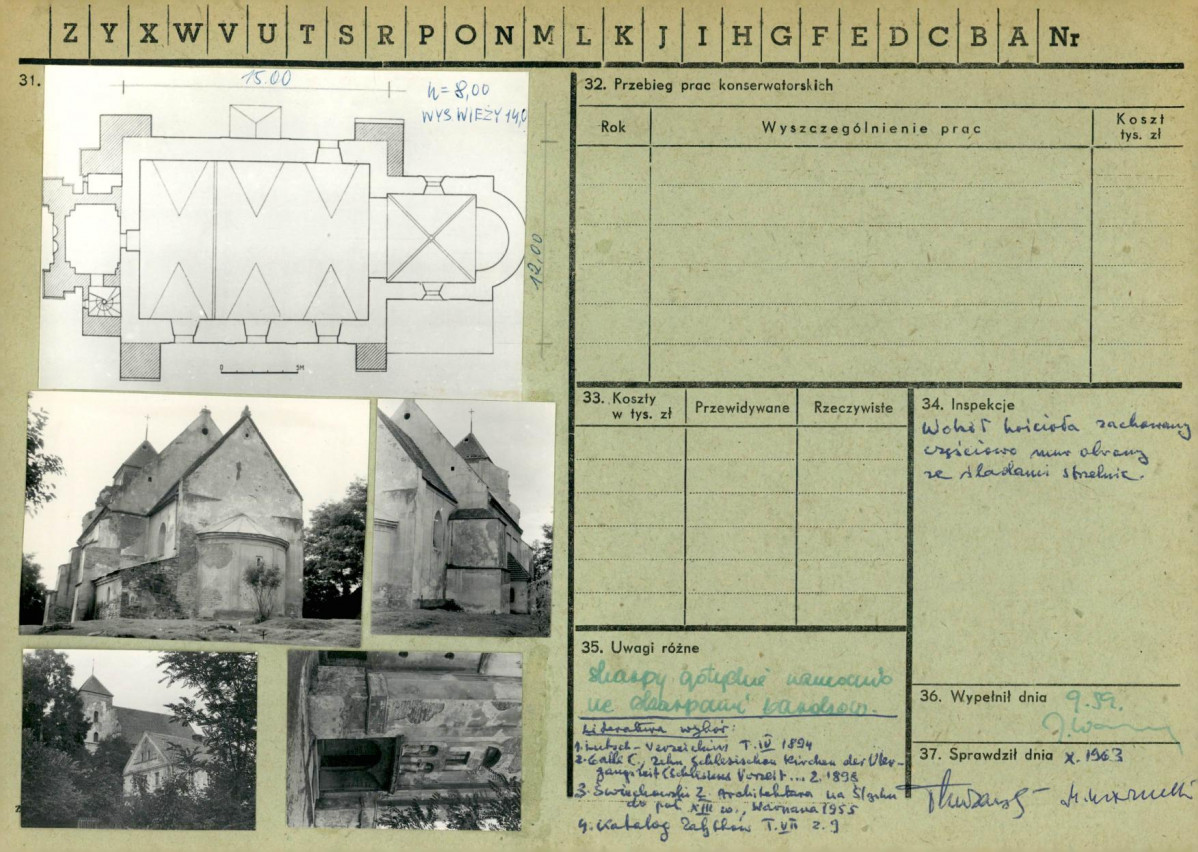 Z Y X W V U T S R P O N M L K J I H G F E D C B A Nr
31.
15.00
h = 8,00
WYS WIEŻY 14,0
12,00
0 3M
32. Przebieg prac konserwatorskich
Rok Wyszczególnienie prac Koszt tys. zł
33. Koszty w tys. zł Przewidywane Rzeczywiste
34. Inspekcje
Wokół kościoła zachowany
częściowo mur obronny
ze śladami strzelnic.
35. Uwagi różne
skarpy gotyckie
Literatura wybór:
1. Lutsch - Verzeichnis T. IV 1894
2. Gallé C, Zehn Schlesischen Kirchen der Über-
gangszeit (Schlesiens Vorzeit... 2. 1898
3. Świechowski Z. Architektura na Śląsku
do poł XIII w., Warszawa 1955
4. Katalog Zabytków T. VII z. 9
36. Wypełnił dnia 9.59.
37. Sprawdził dnia X. 1963